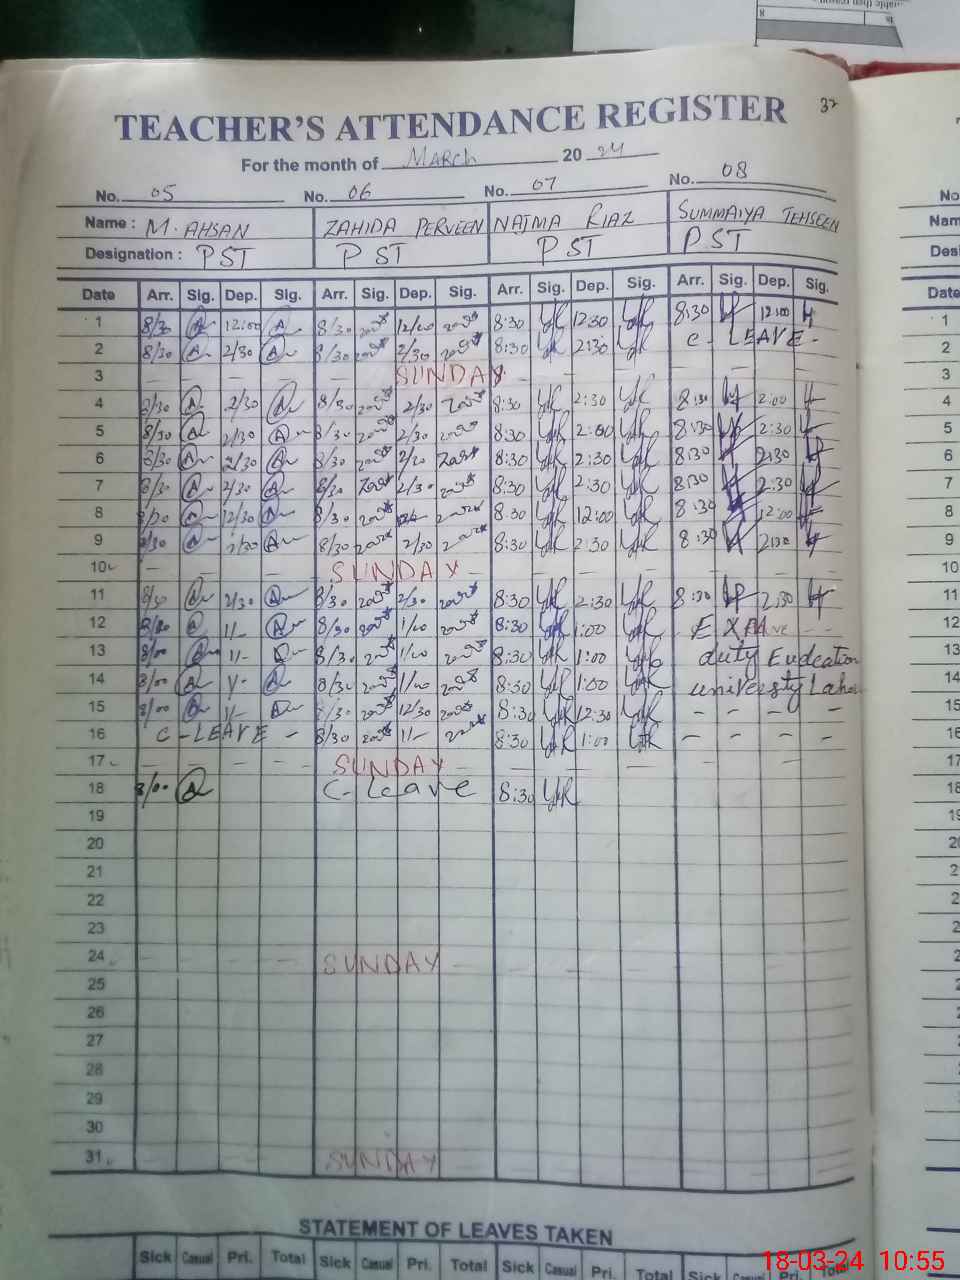 TEACHER'S ATTENDANCE REGISTER 32
For the month of March 20 24
No. 05 No. 06 No. 07 No. 08
Name : M. AHSAN ZAHIDA PERVEEN NAJMA RIAZ SUMMAIYA TEHSEEN
Designation : PST PST PST PST
Date Arr. Sig. Dep. Sig. Arr. Sig. Dep. Sig. Arr. Sig. Dep. Sig. Arr. Sig. Dep. Sig.
1 8/30 12:00 8/30 12/00 8:30 12:30 8:30 12:00
2 8/30 2/30 8/30 2/30 8:30 2:30 C - LEAVE -
3 SUNDAY
4 2/30 8/30 2/30 8:30 2:30 8:30 2:00
5 8/30 2/30 8/30 2/30 8:30 2:00 8:30 2:30
6 8/30 2/30 8/30 2/30 8:30 2:30 8:30 2:30
7 8/30 2/30 8/30 2/30 8:30 2:30 8:30 2:30
8 12/30 8/30 8:30 12:00 8:30 12:00
9 2/30 8/30 2/30 8:30 2:30 8:30 2:30
10 SUNDAY
11 2/30 8/30 2/30 8:30 2:30 8:30 2:30
12 1/- 8/30 1/00 8:30 1:00
13 8/00 1/- 8/30 1/00 8:30 1:00 duty Eudcation
14 8/00 1/- 8/30 1/00 8:30 1:00 universty Lahor
15 8/00 1/- 8/30 12/30 8:30 12:30 - - - -
16 C - LEAVE - 8/30 1/- 8:30 1:00 - - - -
17 SUNDAY
18 8/00 C - Leave 8:30
19
20
21
22
23
24 SUNDAY
25
26
27
28
29
30
31 SUNDAY
STATEMENT OF LEAVES TAKEN
Sick Casual Pri. Total Sick Casual Pri. Total Sick Casual Pri. Total Sick Casual Pri. Total
18-03-24 10:55